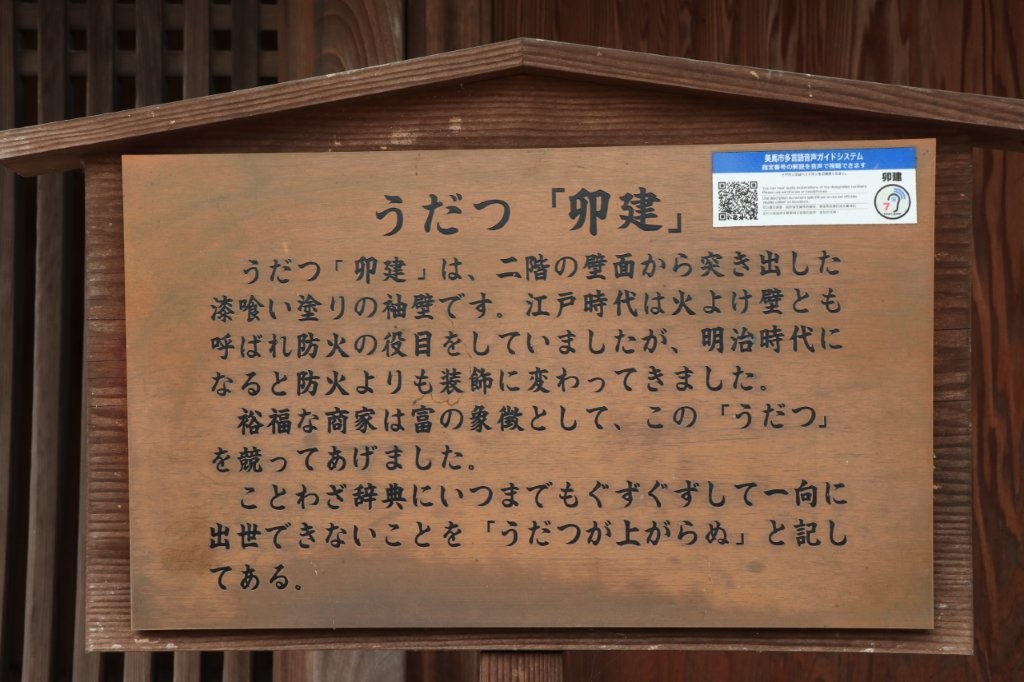 うだつ「卯建」
うだつ「卯建」は、二階の壁面から突き出した
漆喰い塗りの袖壁です。江戸時代は火よけ壁とも
呼ばれ防火の役目をしていましたが、明治時代に
なると防火よりも装飾に変わってきました。
裕福な商家は富の象徴として、この「うだつ」
を競ってあげました。
ことわざ辞典にいつまでもぐずぐずして一向に
出世できないことを「うだつが上がらぬ」と記し
てある。
美馬市多言語音声ガイドシステム
指定番号の解説を音声で視聴できます
卯建
You can hear audio explanations of the designated numbers.
Please use earphones or headphones.
7